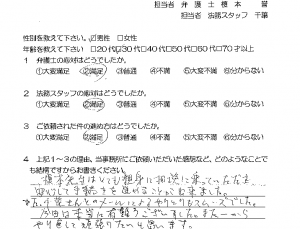 担当者 弁護士榎本 誉
担当者 法務スタッフ 千葉
性別を教えて下さい。 ☑男性 □女性
年齢を教えて下さい □20代☑30代□40代□50代□60代□70才以上
1 弁護士の応対はどうでしたか。
①大変満足 ②満足 ③普通 ④不満 ⑤大変不満 ⑥分からない
2 法務スタッフの応対はどうでしたか。
①大変満足 ②満足 ③普通 ④不満 ⑤大変不満 ⑥分からない
3 ご依頼された件の進め方はどうでしたか。
①大変満足 ②満足 ③普通 ④不満 ⑤大変不満 ⑥分からない
4 上記1~3の理由、当事務所にご依頼いただいた感想など、どのようなことで
も結構ですからお書きください。
榎本先生はとても親身に相談に乗っていただき、
安心して手続きを進めることが出来ました。
また、千葉さんとのメールによるやりとりもスムーズでした。
今回は本当に有難うございました。また一から
やり直して頑張りたいと思います。